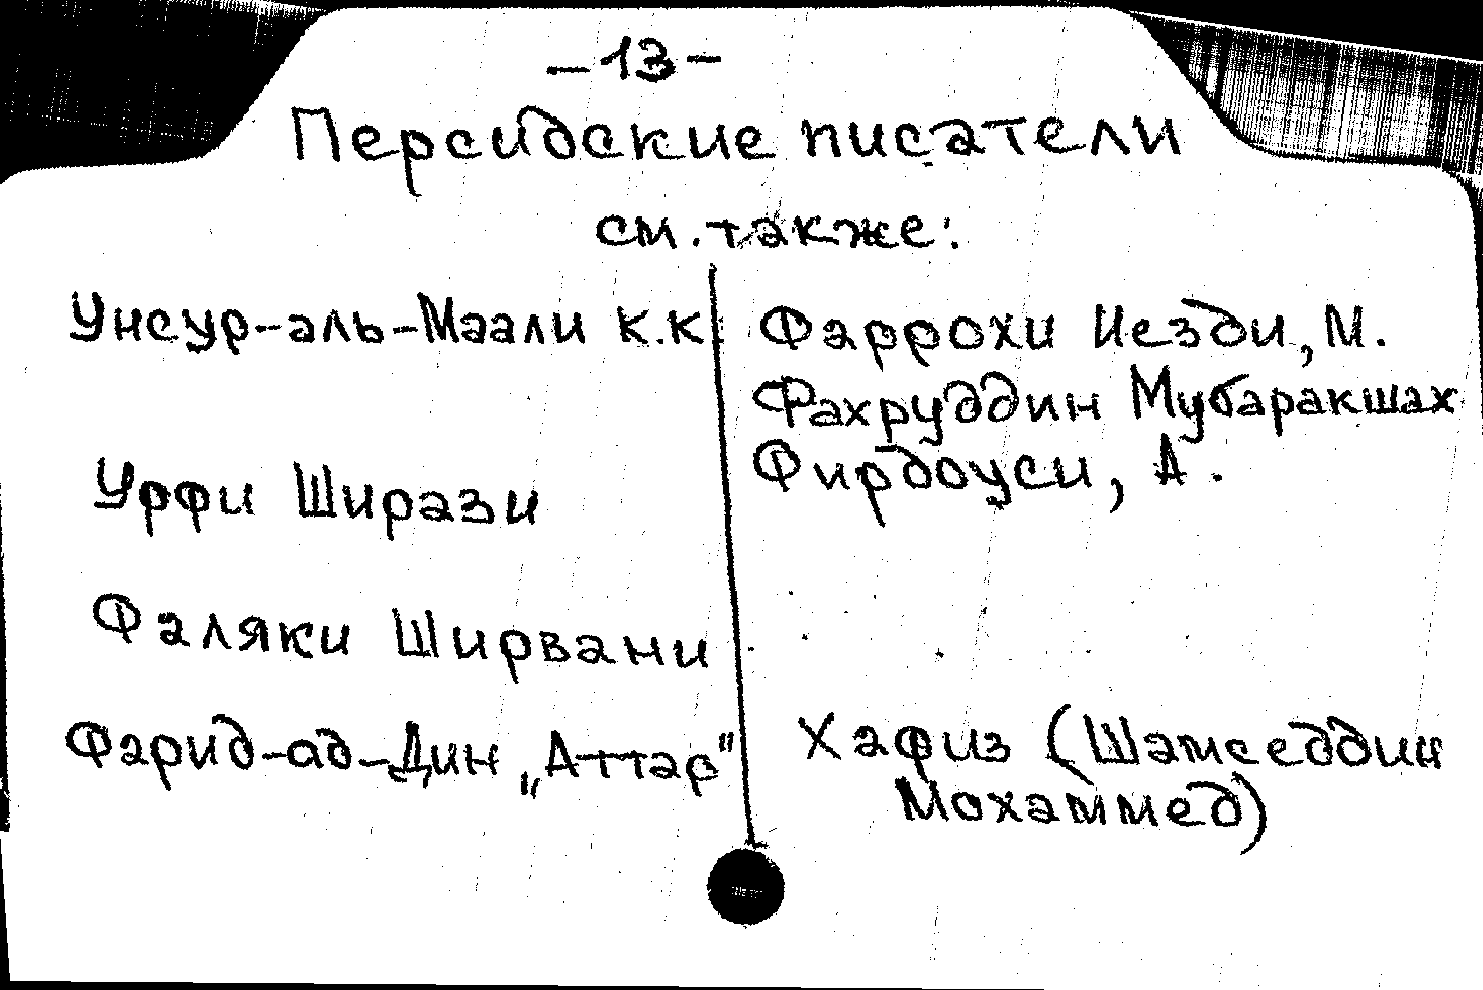 -13-
Персидские писатели
см. также:
Унсур-аль-Маали К.К.
Урфи Ширази
Фаляки Ширвани
Фарид-ад-Дин „Аттар"
Фаррохи Иезди, М.
Фахруддин Мубаракшах
Фирдоуси, А.
Хафиз (Шамседдин
Мохаммед)